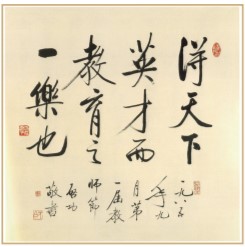 得天下
英才而
教育之
一樂也
一九八五
年九
月第
一屆教
師節
啟功
敬書